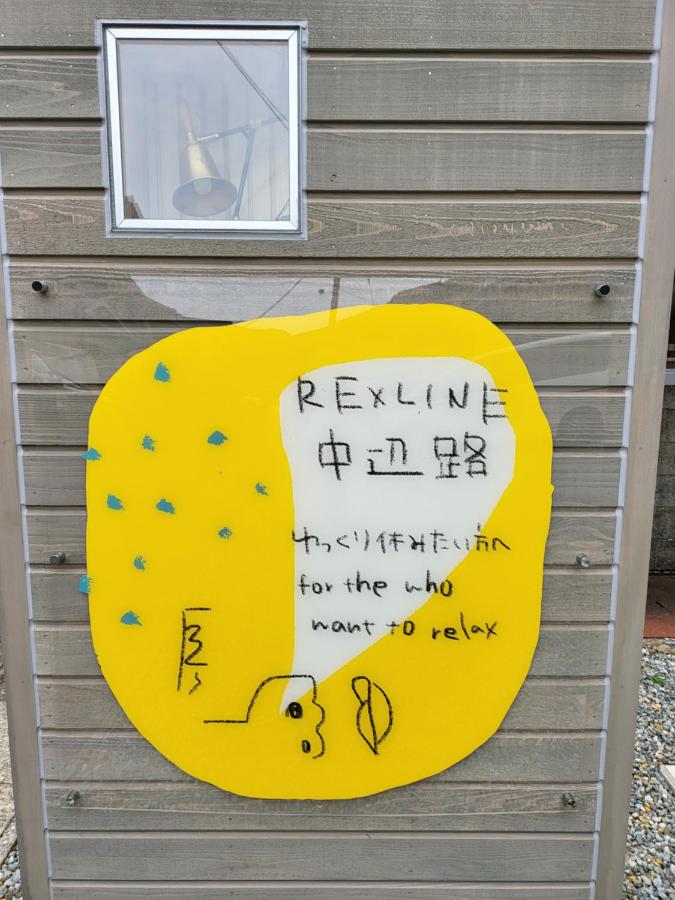 REXLINE
中辺路
ゆっくり休みたい方へ
for the who
want to relax